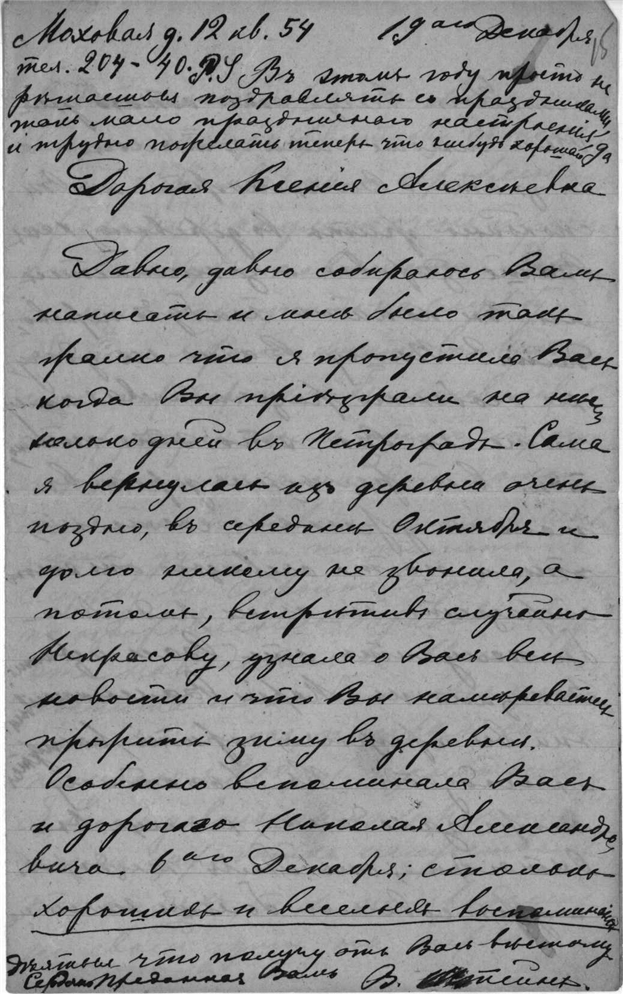 Моховая д. 12 кв. 54 19аго Декабря
тел. 204-40. P.S Въ этомъ году просто не
рѣшаешься поздравлять съ праздниками
такъ мало праздничнаго настроенія да
и трудно пожелать теперь что нибудь хорошаго
Дорогая Ксенія Алексѣевна
Давно, давно собираюсь Вамъ
написать и мнѣ было такъ
жалко что я пропустила Васъ
когда Вы пріѣзжали на нѣс
колько дней въ Петроградъ. Сама
я вернулась изъ деревни очень
поздно, въ серединѣ Октября и
долго никому не звонила, а
потомъ, встрѣтивъ случайно
Некрасову, узнала о Васъ всѣ
новости и что Вы намѣреваетесь
прожить зиму въ деревнѣ.
Особенно вспоминала Васъ
и дорогого Николая Александро
вича 6аго Декабря; столько
хорошихъ и веселыхъ воспоминаній
что получу отъ Васъ вѣсточку
Сердечно преданная Вамъ В.